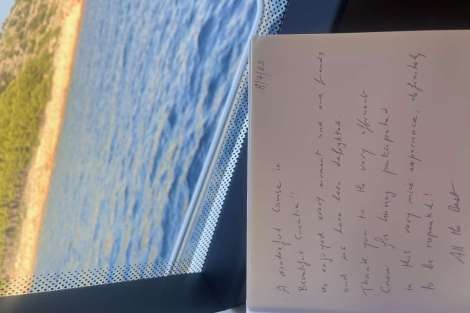 8/9/23
A wonderful Cruise in
Beautiful Croatia!
We enjoyed every moment and our friends
and we have been delighted
Thank you to the very efficient
Crew for having participated
in this very nice experience, definitely
to be repeated!
All the Best